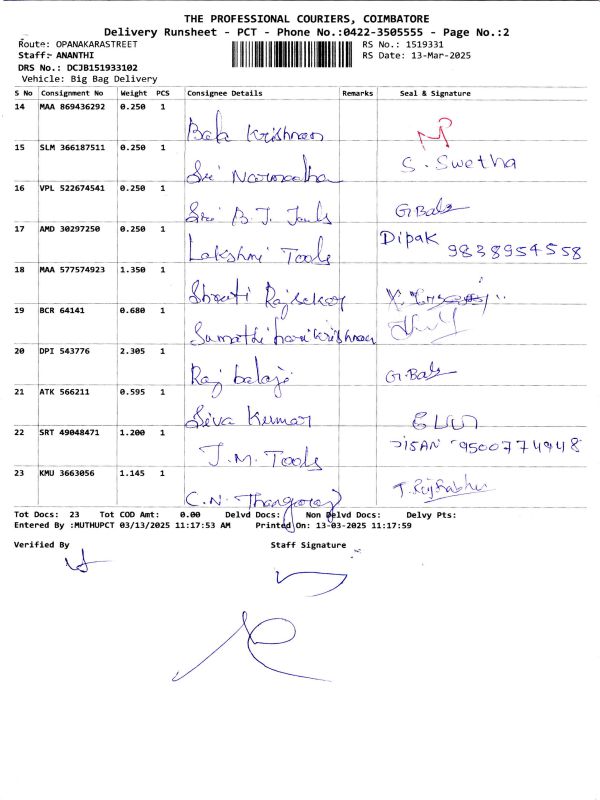 THE PROFESSIONAL COURIERS, COIMBATORE
Delivery Runsheet - PCT - Phone No.:0422-3505555 - Page No.:2
Route: OPANAKARASTREET RS No.: 1519331
Staff:- ANANTHI RS Date: 13-Mar-2025
DRS No.: DCJB151933102
Vehicle: Big Bag Delivery
S No Consignment No Weight PCS Consignee Details Remarks Seal & Signature
14 MAA 869436292 0.250 1
Bala Krishnan
15 SLM 366187511 0.250 1 S. Swetha
Sri Narmadha
16 VPL 522674541 0.250 1
Sri B.J. Tools G.Bala
17 AMD 30297250 0.250 1 Dipak
Lakshmi Tools 9838954558
18 MAA 577574923 1.350 1
Shruti Rajsekar
19 BCR 64141 0.680 1
Sumathi harikrishnan
20 DPI 543776 2.305 1
Raj balaji G.Bala
21 ATK 566211 0.595 1
Siva Kumar
22 SRT 49048471 1.200 1 JISAN 9500774948
J.M. Tools
23 KMU 3663056 1.145 1
C.N. Thangaraj
Tot Docs: 23 Tot COD Amt: 0.00 Delvd Docs: Non Delvd Docs: Delvy Pts:
Entered By :MUTHUPCT 03/13/2025 11:17:53 AM Printed On: 13-03-2025 11:17:59
Verified By Staff Signature